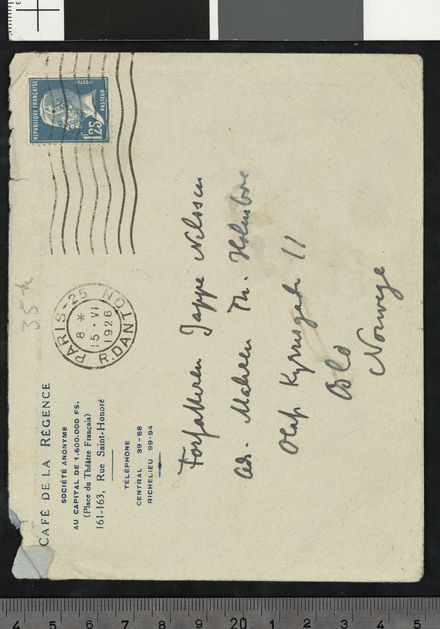 CAFÉ DE LA RÉGENCE
SOCIÉTÉ ANONYME
AU CAPITAL DE 1.600.000 FS.
(Place du Théâtre Français)
161-163, Rue Saint-Honoré
TÉLÉPHONE
CENTRAL 39-68
RICHELIEU 99-94
35 k
PARIS-25
8 *
15 · VI
1926
R. DANTON
REPUBLIQUE FRANÇAISE
POSTES
PASTEUR
1F25
Forfatteren Jappe Nilssen
ad. Maleren Th. Holmboe
Olaf Kyrresgate 11
Oslo
Norwege
4 5 6 7 8 9 20 1 2 3 4 5